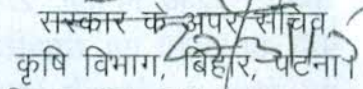 सरकार के अपर सचिव,
कृषि विभाग, बिहार, पटना।